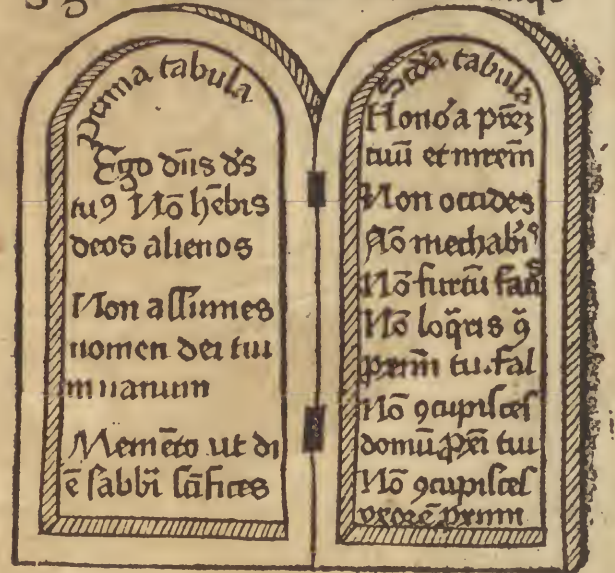 Prima tabula
Ego dn̄s ds̄
tuꝰ Nō hēbis
deos alienos
Non aſſumes
nomen dei tui
in uanum
Memēto ut di
ē ſabbī ſc̄ifices
Scd̓a tabula
Hono͛a pr̄eꝫ
tuū et mr̄em
Non occides
Nō mechabiˢ
Nō furtū faciˢ
Nō loq̄ris ꝯ̄
prīm tu. fal
Nō ꝯcupiſces
domū prī tui
Nō ꝯcupiſces
vxorē prīmi